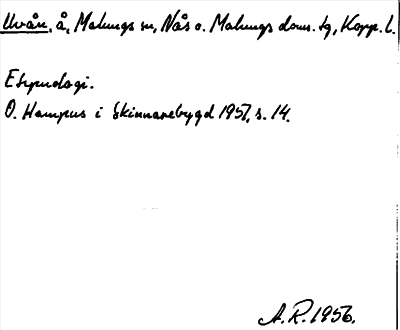 Uvån, å, Malungs sn, Nås o. Malungs doms. tg, Kopp. l.
Etymologi.
O. Hampus i Skinnarebygd 1951, s. 14.
A. R. 1956.